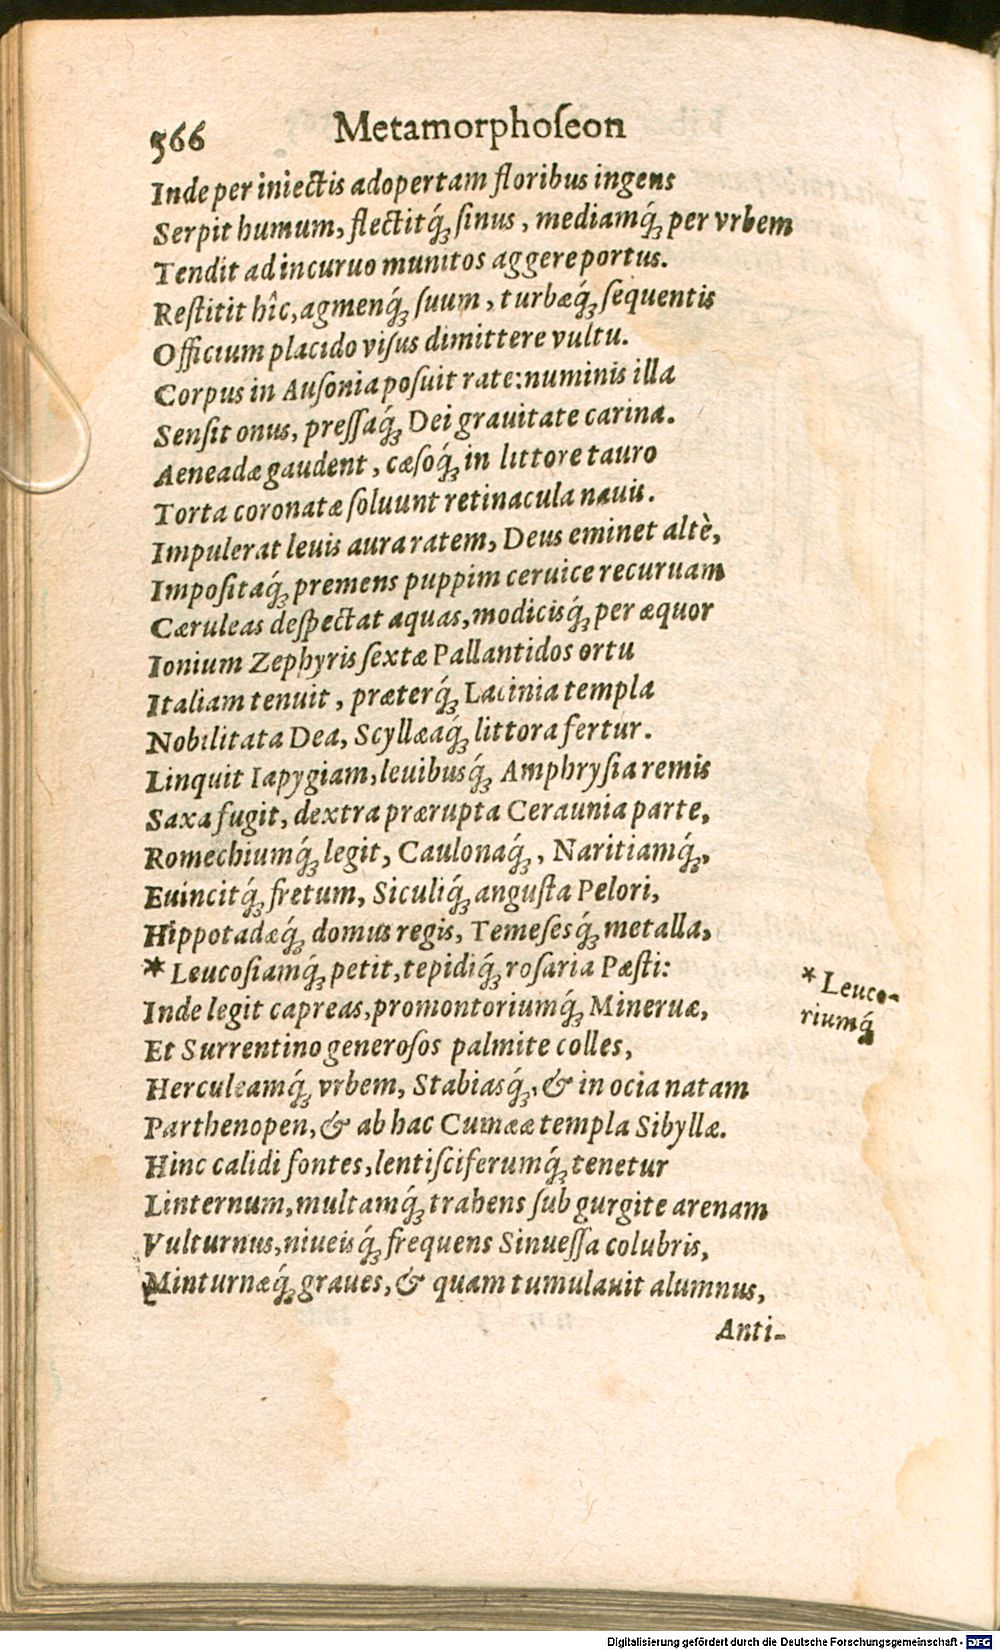 566 Metamorphoſeon
Inde per iniectis adopertam floribus ingens
Serpit humum, flectitq́ꝫ ſinus, mediamq́ꝫ per vrbem
Tendit ad incuruo munitos aggere portus.
Reſtitit hîc, agmenq́ꝫ ſuum, turbæq́ꝫ ſequentis
Officium placido viſus dimittere vultu.
Corpus in Auſonia poſuit rate: numinis illa
Senſit onus, preſſaq́ꝫ Dei grauitate carina.
Aeneadæ gaudent, cæſoq́ꝫ in littore tauro
Torta coronatæ ſoluunt retinacula nauis.
Impulerat leuis aura ratem, Deus eminet altè,
Impoſitaq́ꝫ premens puppim ceruice recuruam
Cæruleas deſpectat aquas, modicisq́ꝫ per æquor
Ionium Zephyris ſextæ Pallantidos ortu
Italiam tenuit, præterq́ꝫ Lacinia templa
Nobilitata Dea, Scyllæaq́ꝫ littora fertur.
Linquit Iapygiam, leuibusq́ꝫ Amphryſia remis
Saxa fugit, dextra prærupta Ceraunia parte,
Romechiumq́ꝫ legit, Caulonaq́ꝫ, Naritiamq́ꝫ,
Euincitq́ꝫ fretum, Siculiq́ꝫ anguſta Pelori,
Hippotadæq́ꝫ domus regis, Temeſesq́ꝫ metalla,
* Leucoſiamq́ꝫ petit, tepidiq́ꝫ roſaria Pæſti:
* Leuco-
riumq́ꝫ
Inde legit capreas, promontoriumq́ꝫ Mineruæ,
Et Surrentino generoſos palmite colles,
Herculeamq́ꝫ vrbem, Stabiasq́ꝫ, & in ocia natam
Parthenopen, & ab hac Cumææ templa Sibyllæ.
Hinc calidi fontes, lentiſciferumq́ꝫ tenetur
Linternum, multamq́ꝫ trahens ſub gurgite arenam
Vulturnus, niueisq́ꝫ frequens Sinueſſa colubris,
Minturnæq́ꝫ graues, & quam tumulauit alumnus,
Anti-
Digitalisierung gefördert durch die Deutsche Forschungsgemeinschaft - DFG